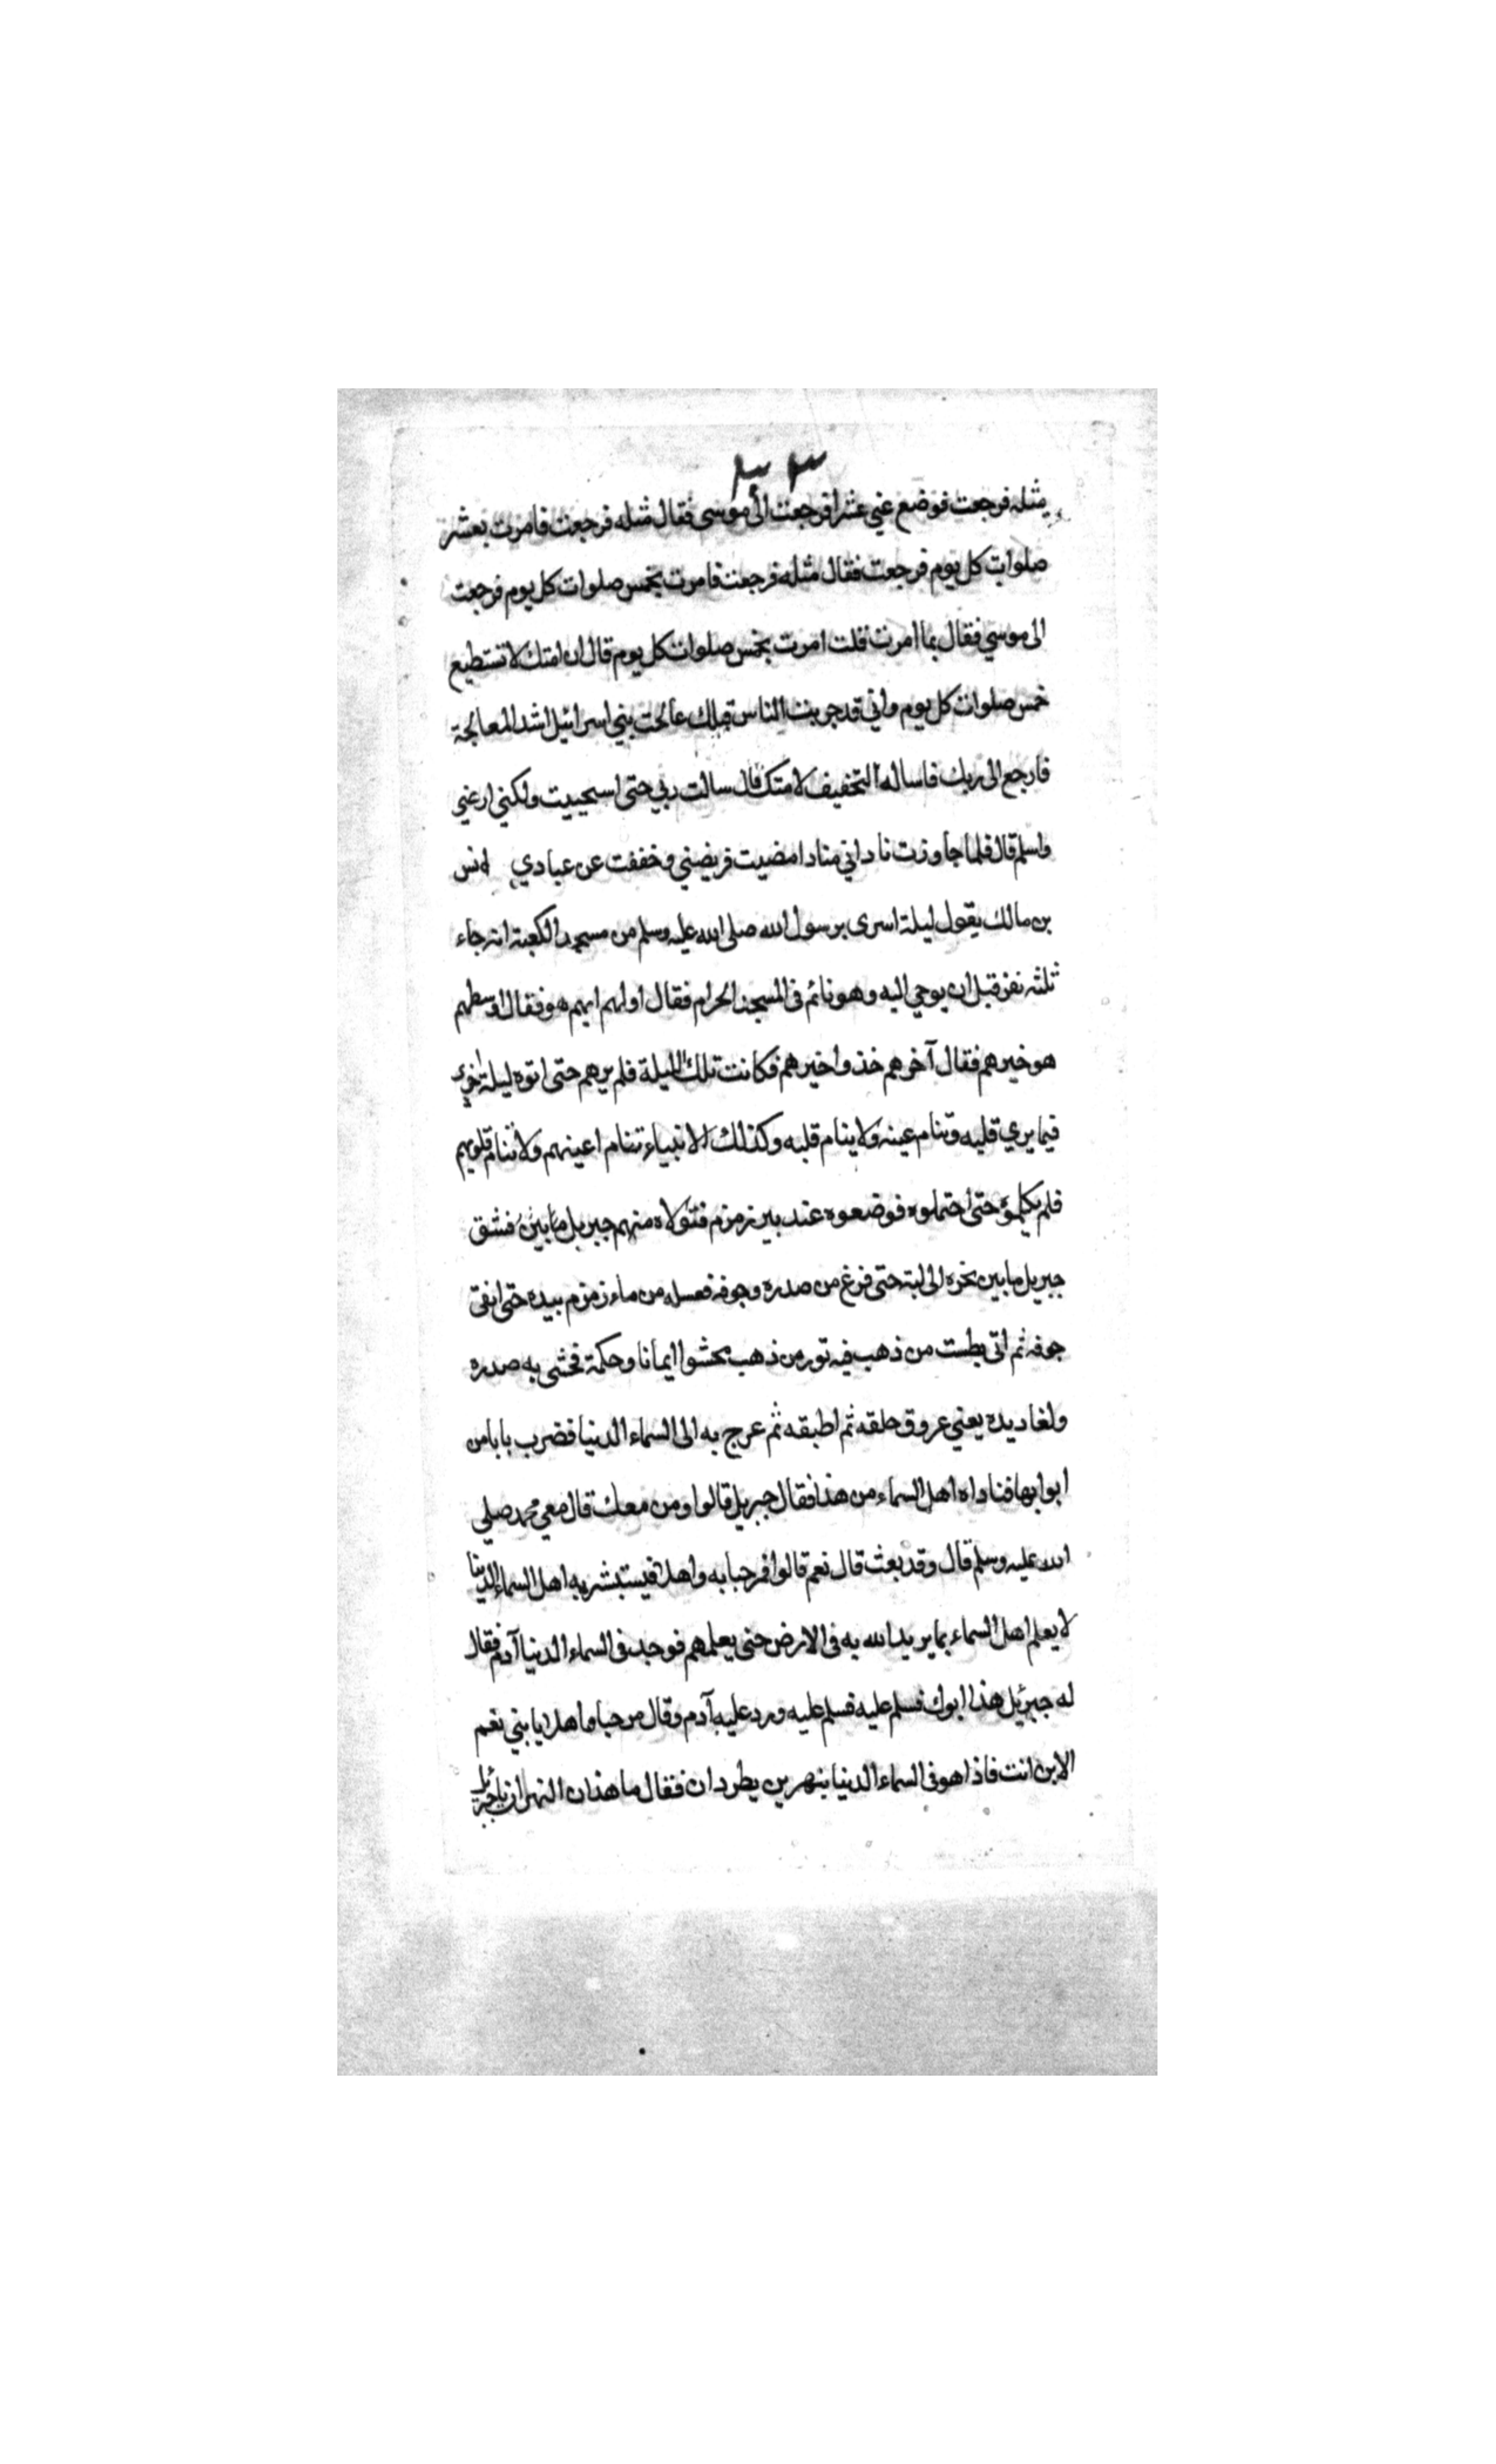 مثله فرجعت فوضع عني عشرا فرجعت الى موسى فقال مثله فرجعت فامرت بعشر
صلوات كل يوم فرجعت فقال مثله فرجعت فامرت بخمس صلوات كل يوم فرجعت
الى موسي فقال بما امرت قلت امرت بخمس صلوات كل يوم قال ان امتك لا تستطيع
خمس صلوات كل يوم واني قد جربت الناس قبلك عالجت بني اسرائيل اشد المعالجة
فارجع الى ربك فاساله التخفيف لامتك قال سالت ربي حتى استحييت ولكني ارضي
واسلم قال فلما جاوزت ناداني مناد امضيت فريضتي وخففت عن عبادي انس
بن مالك يقول ليلة اسرى برسول الله صلى الله عليه وسلم من مسجد الكعبة انه جاء
ثلثه نفر قبل ان يوحي اليه وهو نائم في المسجد الحرام فقال اولهم ايهم هو فقال اوسطهم
هو خيرهم فقال آخرهم خذوا خيرهم فكانت تلك الليلة فلم يرهم حتى اتوه ليلة اخرى
فيما يري قلبه وتنام عينه ولا ينام قلبه وكذلك الانبياء تنام اعينهم ولا تنام قلوبهم
فلم يكلموه حتى احتملوه فوضعوه عند بير زمزم فتولاه منهم جبريل ما بين فشق
جبريل ما بين نحره الى لبته حتى فرغ من صدره وجوفه فغسله من ماء زمزم بيده حتى انقى
جوفه ثم اتى بطست من ذهب فيه تور من ذهب محشوا ايمانا وحكمة فحشى به صدره
ولغاديده يعني عروق حلقه ثم اطبقه ثم عرج به الى السماء الدنيا فضرب بابا من
ابوابها فناداه اهل السماء من هذا فقال جبريل قالوا ومن معك قال معي محمد صلى
الله عليه وسلم قال وقد بعث قال نعم قالوا فمرحبا به واهلا فيستبشر به اهل السماء الدنيا
لا يعلم اهل السماء بما يريد الله به في الارض حتى يعلمهم فوجد في السماء الدنيا آدم فقال
له جبرئيل هذا ابوك فسلم عليه فسلم عليه ورد عليه آدم وقال مرحبا واهلا يا بني نعم
الابن انت فاذا هو في السماء الدنيا بنهرين يطردان فقال ما هذان النهران يا جبرئيل